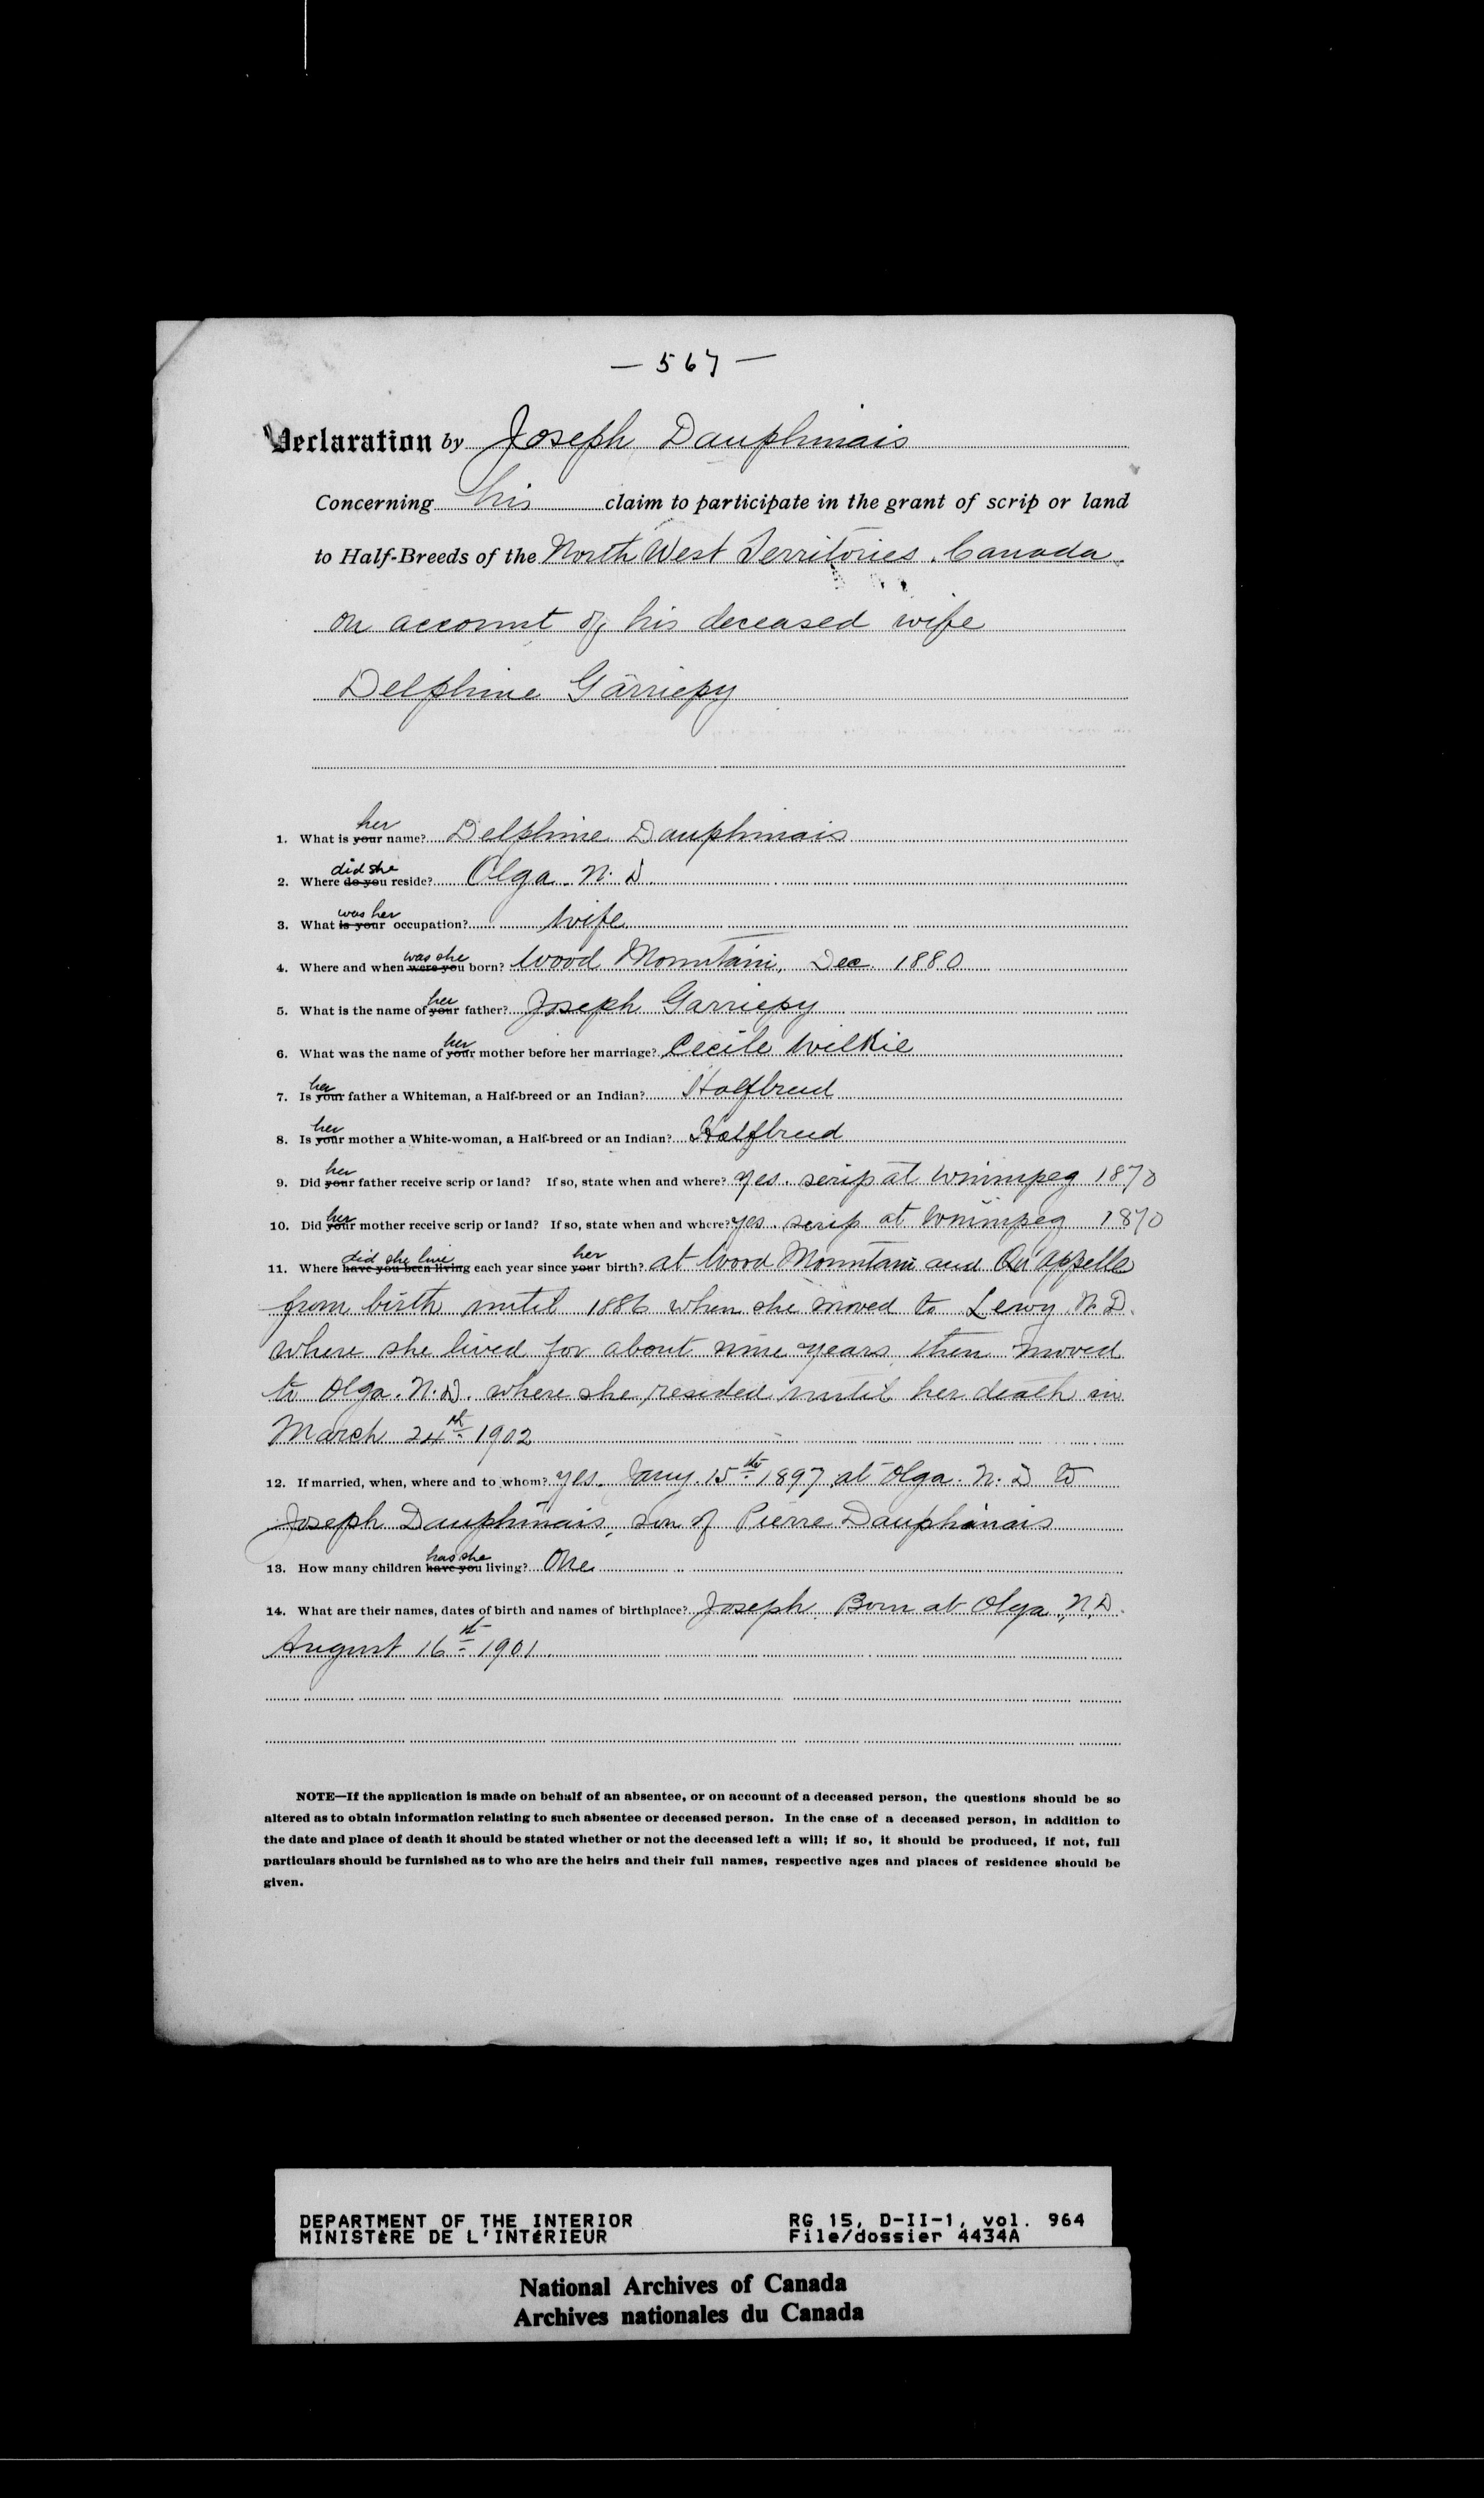 — 567 —
Declaration by Joseph Dauphinais
Concerning his claim to participate in the grant of scrip or land
to Half-Breeds of the North West Territories. Canada.
on account of his deceased wife
Delphine Garriepy
her
1. What is your name? Delphine Dauphinais
did she
2. Where do you reside? Olga. N. D.
was her
3. What is your occupation? Wife
was she
4. Where and when were you born? Wood Mountain, Dec. 1880
her
5. What is the name of your father? Joseph Garriepy
her
6. What was the name of your mother before her marriage? Cecile Wilkie
her
7. Is your father a Whiteman, a Half-breed or an Indian? Halfbreed
her
8. Is your mother a White-woman, a Half-breed or an Indian? Halfbreed
her
9. Did your father receive scrip or land? If so, state when and where? Yes. scrip at Winnipeg 1870
her
10. Did your mother receive scrip or land? If so, state when and where? Yes. scrip at Winnipeg 1870
did she live her
11. Where have you been living each year since your birth? at Wood Mountain and Qu'Appelle
from birth until 1886 when she moved to Leroy N. D.
where she lived for about nine years, then moved
to Olga. N. D. where she resided until her death in
March 24th 1902
12. If married, when, where and to whom? Yes. Jany. 15th 1897 at Olga. N. D to
Joseph Dauphinais, son of Pierre Dauphinais
has she
13. How many children have you living? One
14. What are their names, dates of birth and names of birthplace? Joseph. Born at Olga, N.D.
August 16th 1901.
NOTE—If the application is made on behalf of an absentee, or on account of a deceased person, the questions should be so
altered as to obtain information relating to such absentee or deceased person. In the case of a deceased person, in addition to
the date and place of death it should be stated whether or not the deceased left a will; if so, it should be produced, if not, full
particulars should be furnished as to who are the heirs and their full names, respective ages and places of residence should be
given.
DEPARTMENT OF THE INTERIOR RG 15, D-II-1, vol. 964
MINISTÈRE DE L'INTÉRIEUR File/dossier 4434A
National Archives of Canada
Archives nationales du Canada